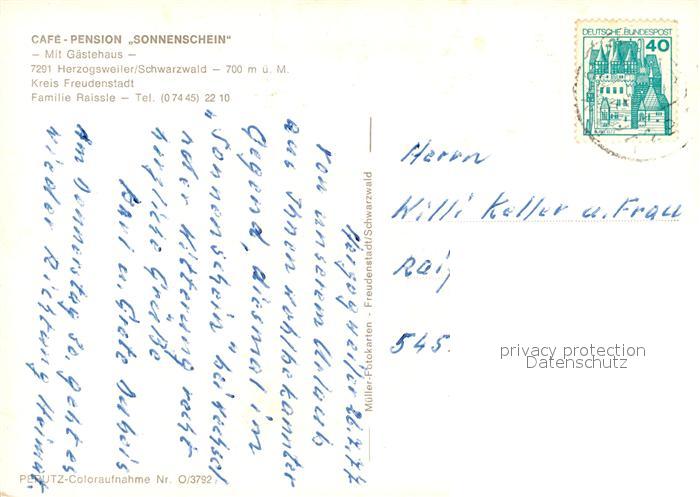 CAFÉ - PENSION „SONNENSCHEIN"
— Mit Gästehaus —
7291 Herzogsweiler/Schwarzwald — 700 m ü. M.
Kreis Freudenstadt
Familie Raissle — Tel. (0 74 45) 22 10
DEUTSCHE BUNDESPOST
40
Herzogsweiler 26.7.77
von unserem Urlaub
aus Ihnen wohlbekannter
Gegend, diesmal im
"Sonnenschein" bei wechsel
nder Witterung recht
herzliche Grüße
Paul u. Grete
Am Donnerstag geht es
wieder Richtung Heimat.
Müller-Fotokarten - Freudenstadt/Schwarzwald
Herrn
Willi Keller u. Frau
545.
privacy protection
Datenschutz
PERUTZ-Coloraufnahme Nr. O/3792